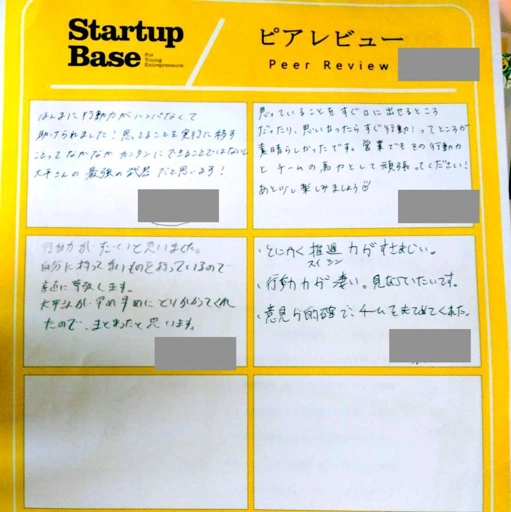 Startup
Base
For
Young
Entrepreneurs
ピアレビュー
Peer Review
ほんまに行動力がハンパなくて
助けられました！思ったことを実行に移す
ことってなかなかカンタンにできることではないし
大平さんの最強の武器だと思います！
思っていることをすぐ口に出せるところ
だったり、思いたったらすぐ行動！ってところが
素晴らしかったです。営業でもその行動力
とチームの馬力として頑張ってください！
あと少し楽しみましょう
行動力がすごいと思いました。
自分に持ってないものを持っているので
素直に尊敬します。
大平さんが早め早めにとりかかってくれ
たので、まとまったと思います。
・とにかく推進力がすさまじい。
スイシン
・行動力が凄い。見ならいたいです。
・意見が的確で、チームをまとめてくれた。